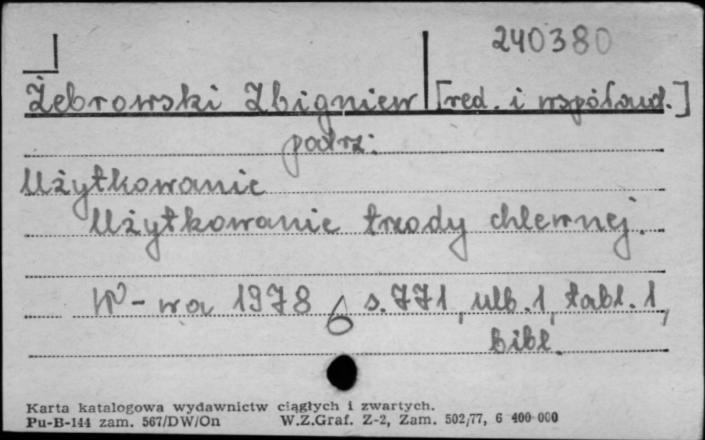 240380
Żebrowski Zbigniew [red. i współaut.]
patrz:
Użytkowanie
Użytkowanie trzody chlewnej.
W-wa 1978 s. 771, ulb. 1, tabl. 1,
bibl.
Karta katalogowa wydawnictw ciągłych i zwartych.
Pu-B-144 zam. 567/DW/On W.Z.Graf. Z-2, Zam. 502/77, 6 400 000